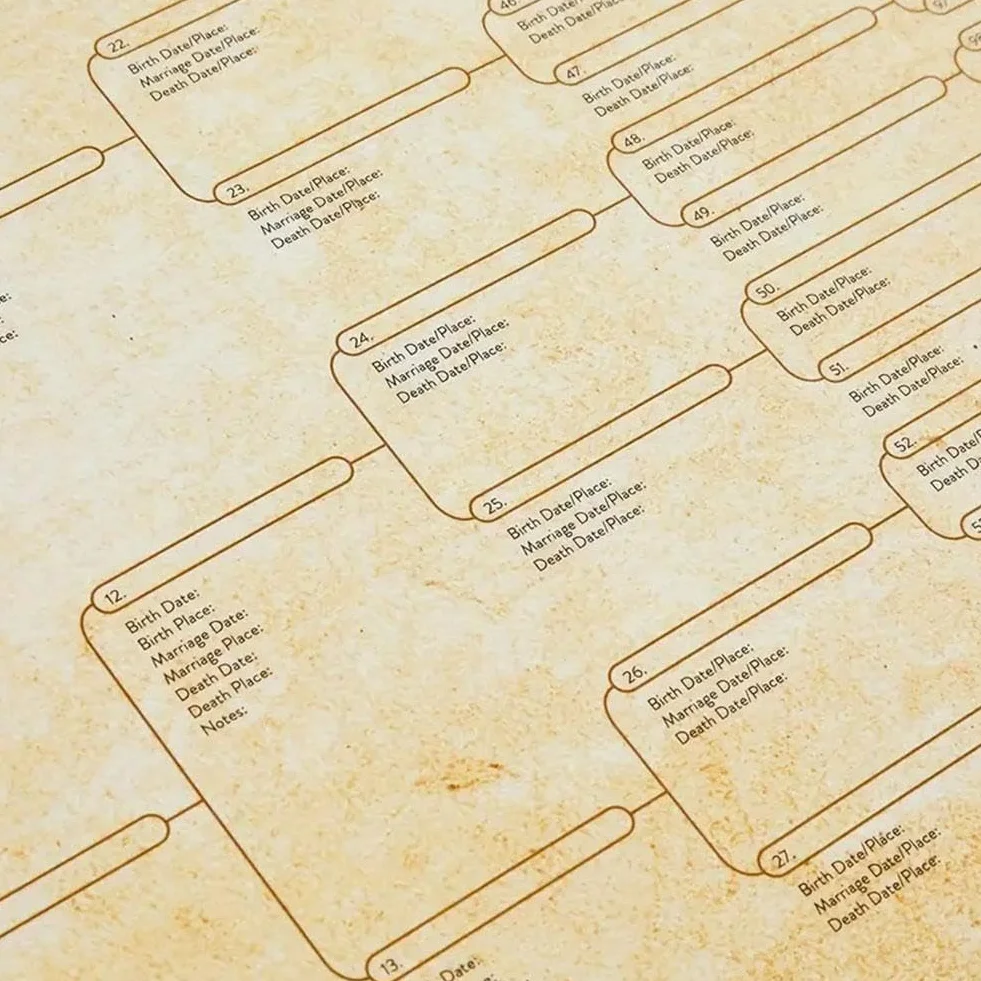 22.
Birth Date/Place:
Marriage Date/Place:
Death Date/Place:
23.
Birth Date/Place:
Marriage Date/Place:
Death Date/Place:
46.
Birth Date/Place:
Death Date/Place:
47.
Birth Date/Place:
Death Date/Place:
48.
Birth Date/Place:
Death Date/Place:
49.
Birth Date/Place:
Death Date/Place:
24.
Birth Date/Place:
Marriage Date/Place:
Death Date/Place:
25.
Birth Date/Place:
Marriage Date/Place:
Death Date/Place:
50.
Birth Date/Place:
Death Date/Place:
51.
Birth Date/Place:
Death Date/Place:
52.
Birth Date/P
Death Date
12.
Birth Date:
Birth Place:
Marriage Date:
Marriage Place:
Death Date:
Death Place:
Notes:
13.
Date:
26.
Birth Date/Place:
Marriage Date/Place:
Death Date/Place:
27.
Birth Date/Place:
Marriage Date/Place:
Death Date/Place: